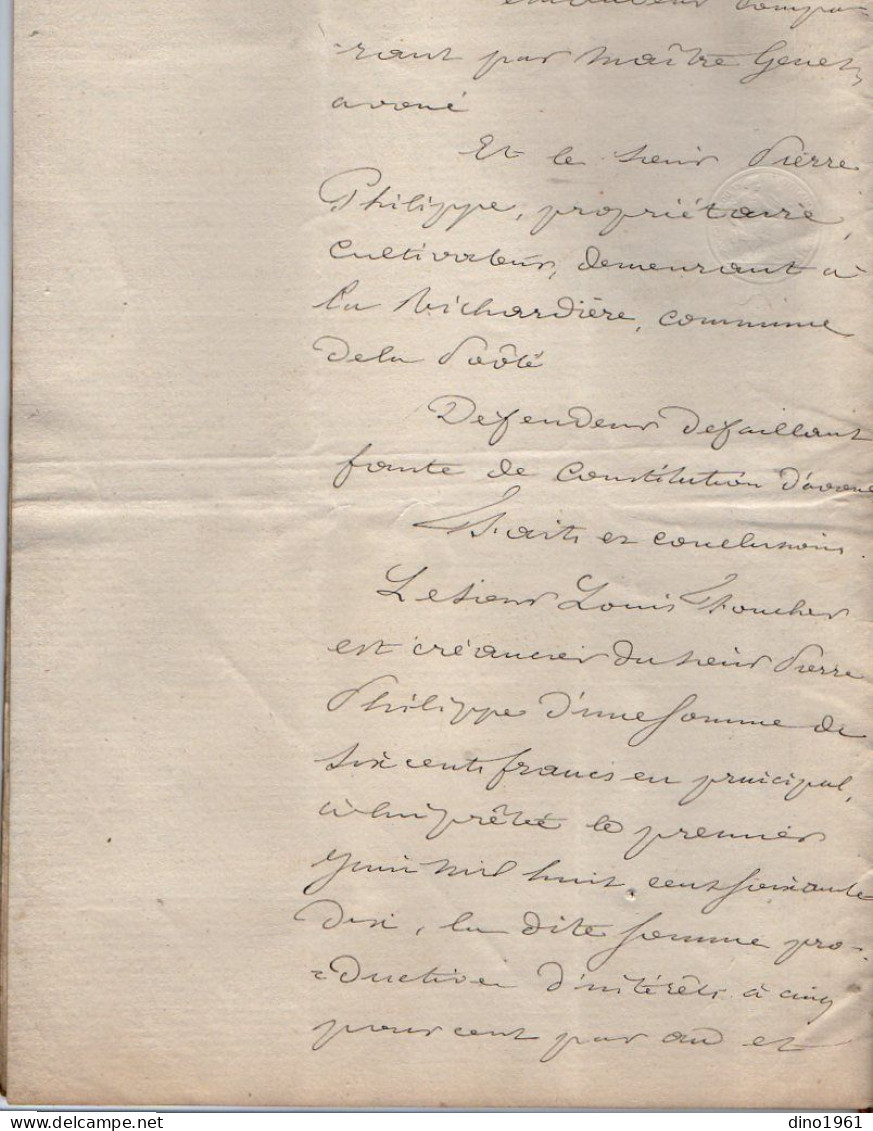 compa-
-rant par Maître Genet,
avoué
Et le sieur Pierre
Philippe, propriétaire,
cultivateur, demeurant à
la Richardière, commune
de la Poôté
Défendeur défaillant
faute de constitution d'avoué
Faits et conclusions.
Le sieur Louis Foucher
est créancier du sieur Pierre
Philippe d'une somme de
six cents francs en principal,
à lui prêtée le premier
Juin mil huit cent soixante
dix, la dite somme pro-
=ductive d'intérêts à cinq
pour cent par an et
delcampe.net
dino1961